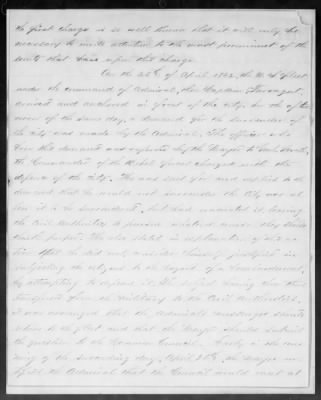 the first charge is so well known that it will only be
necessary to invite attention to the most prominent of the
facts that bear upon this charge.
On the 25th of April 1862, the U.S. fleet
under the command of Admiral, then Captain Farragut,
arrived and anchored in front of the city. In the after
noon of the same day, a demand for the surrender of
the city was made by the Admiral. The officer who
bore this demand was referred by the Mayor to
the Commander of the Rebel forces charged with the
defence of the city. He was sent for and replied to the
demand that he would not surrender the City nor al
low it to be surrendered, but had evacuated it, leaving
the Civil Authorities to pursue whatever course they should
think proper. He also stated in explanation of
that he did not consider himself justified in
subjecting the citizens to the of a bombardment,
by attempting to defend it. The subject having been thus
transferred from the Military to the Civil Authorities,
it was arranged that the Admiral's messenger should
return to the fleet and that the Mayor should submit
the question to the Common Council. Early in the mor
ning of the succeeding day, April 26th, the Mayor no
tified the Admiral that the Council would meet at